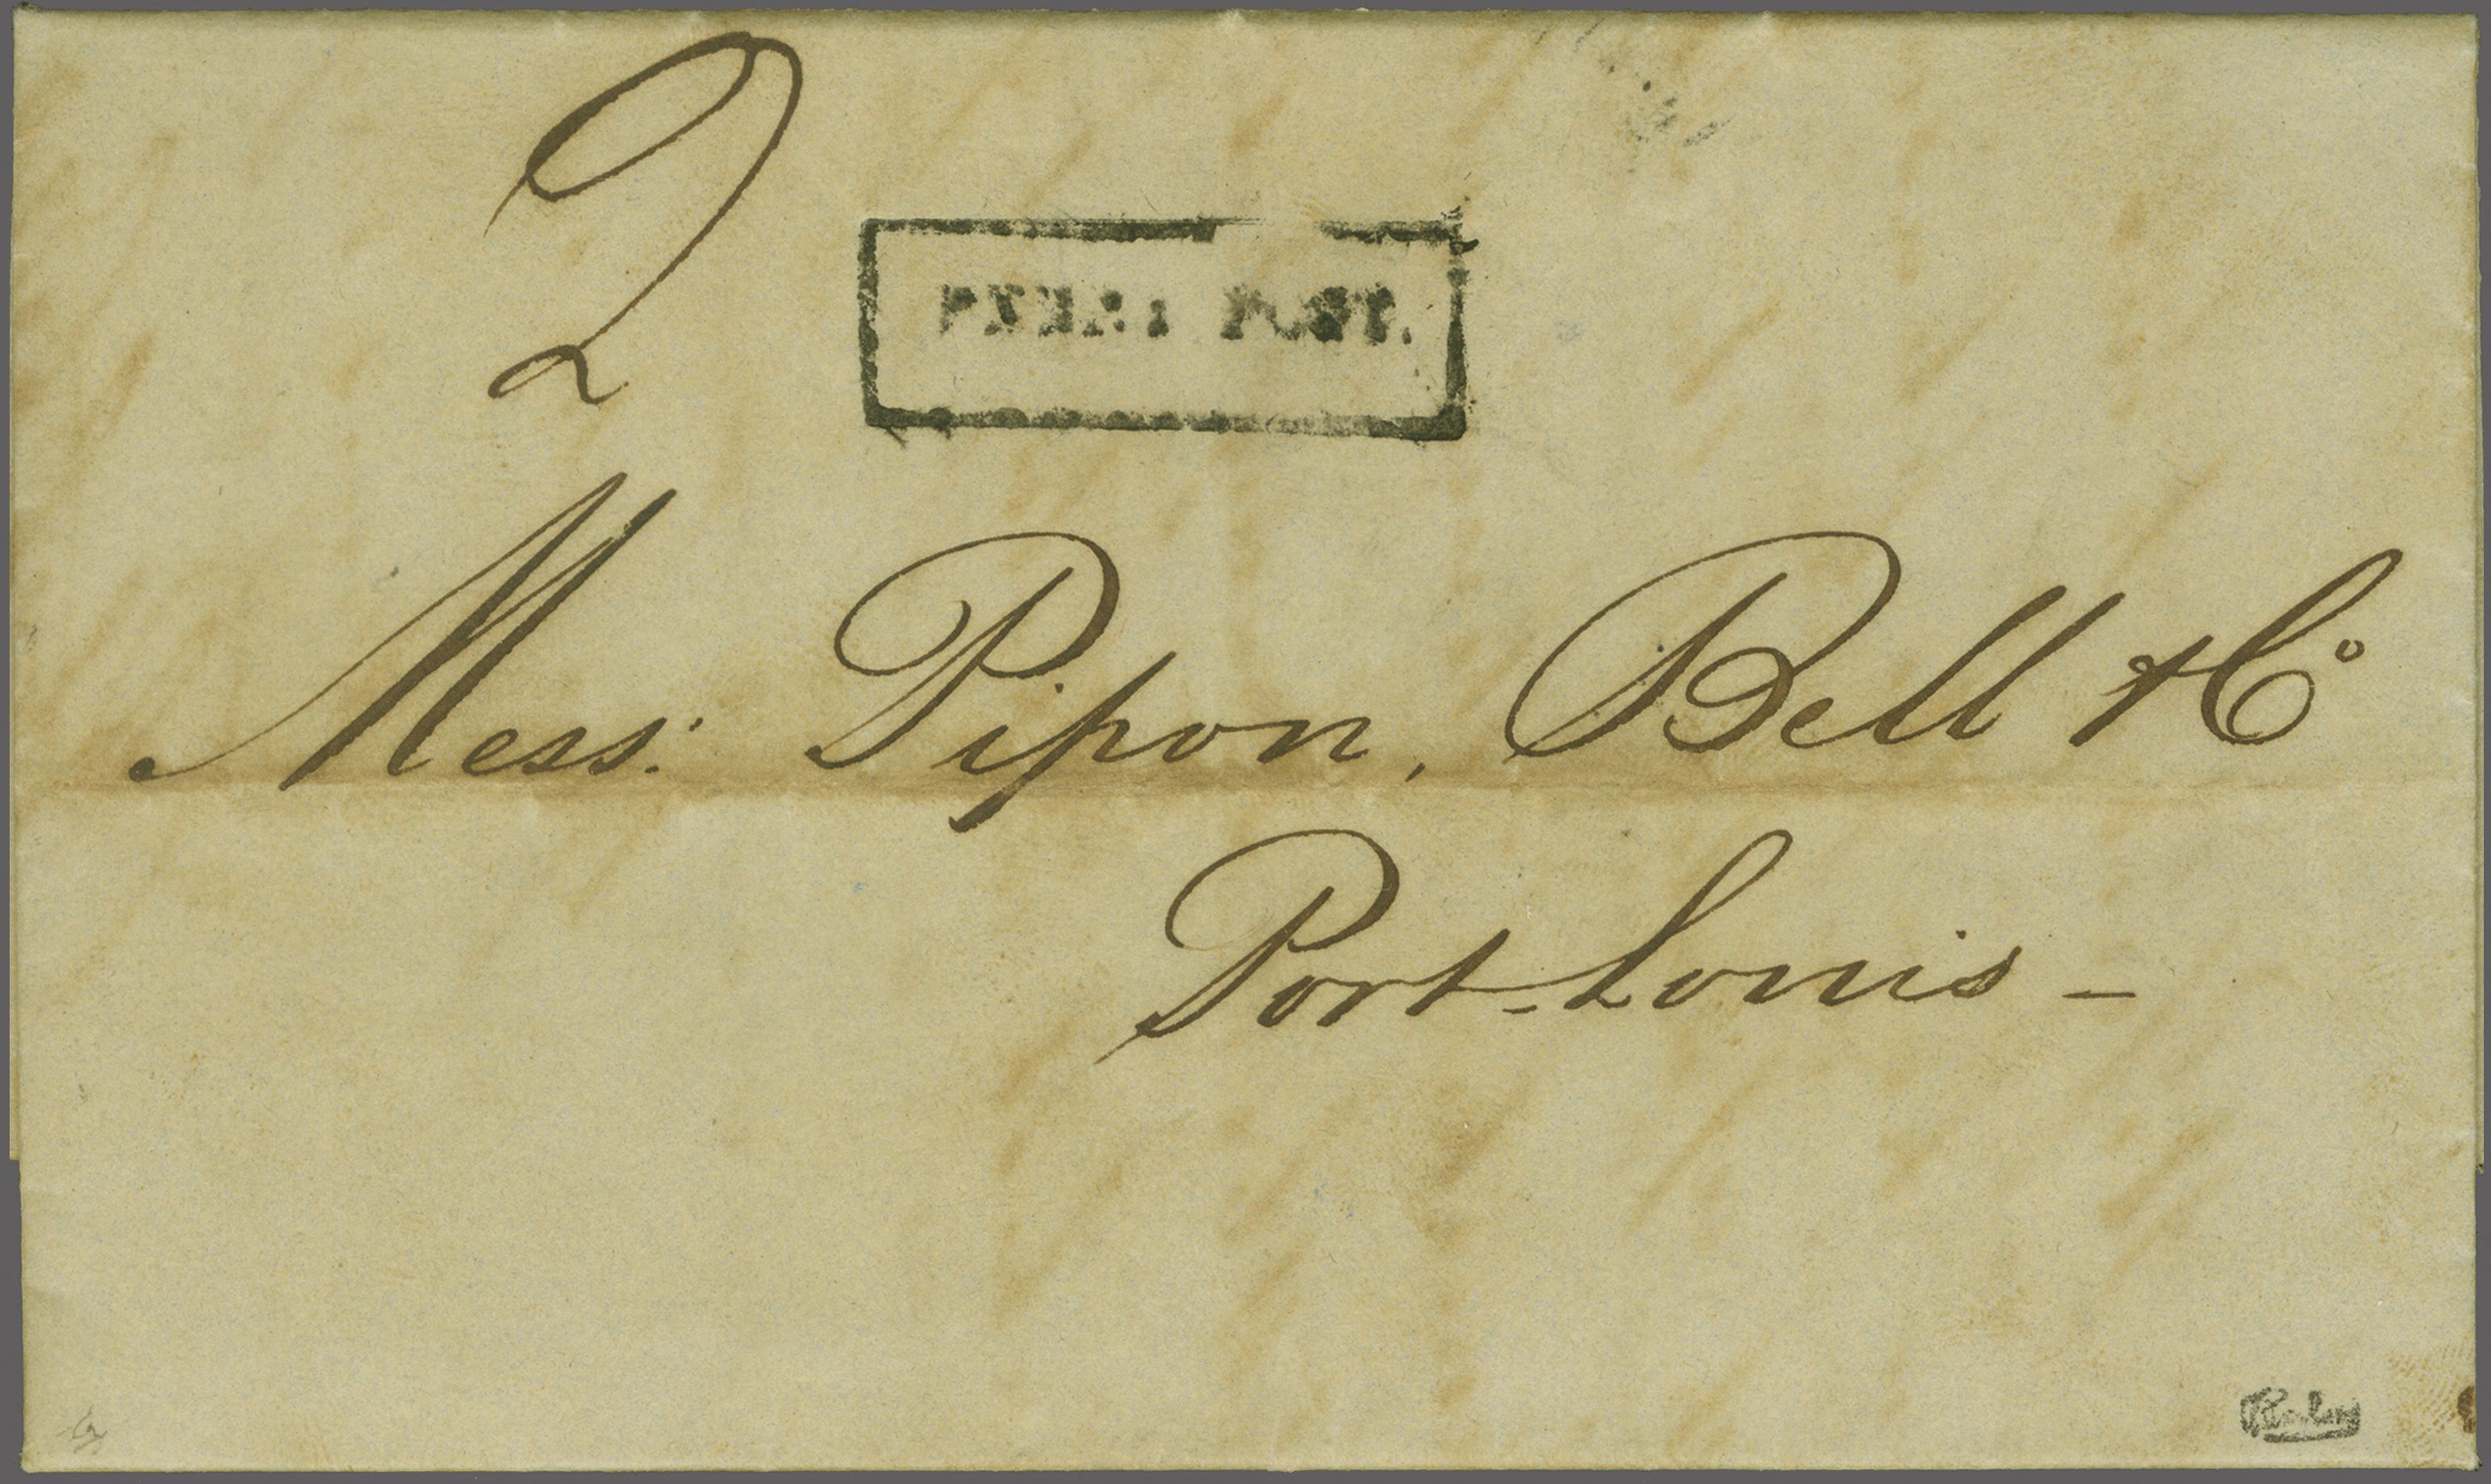 2
PENNY POST.
Mess: Pipon, Bell & Co
Port-Louis -